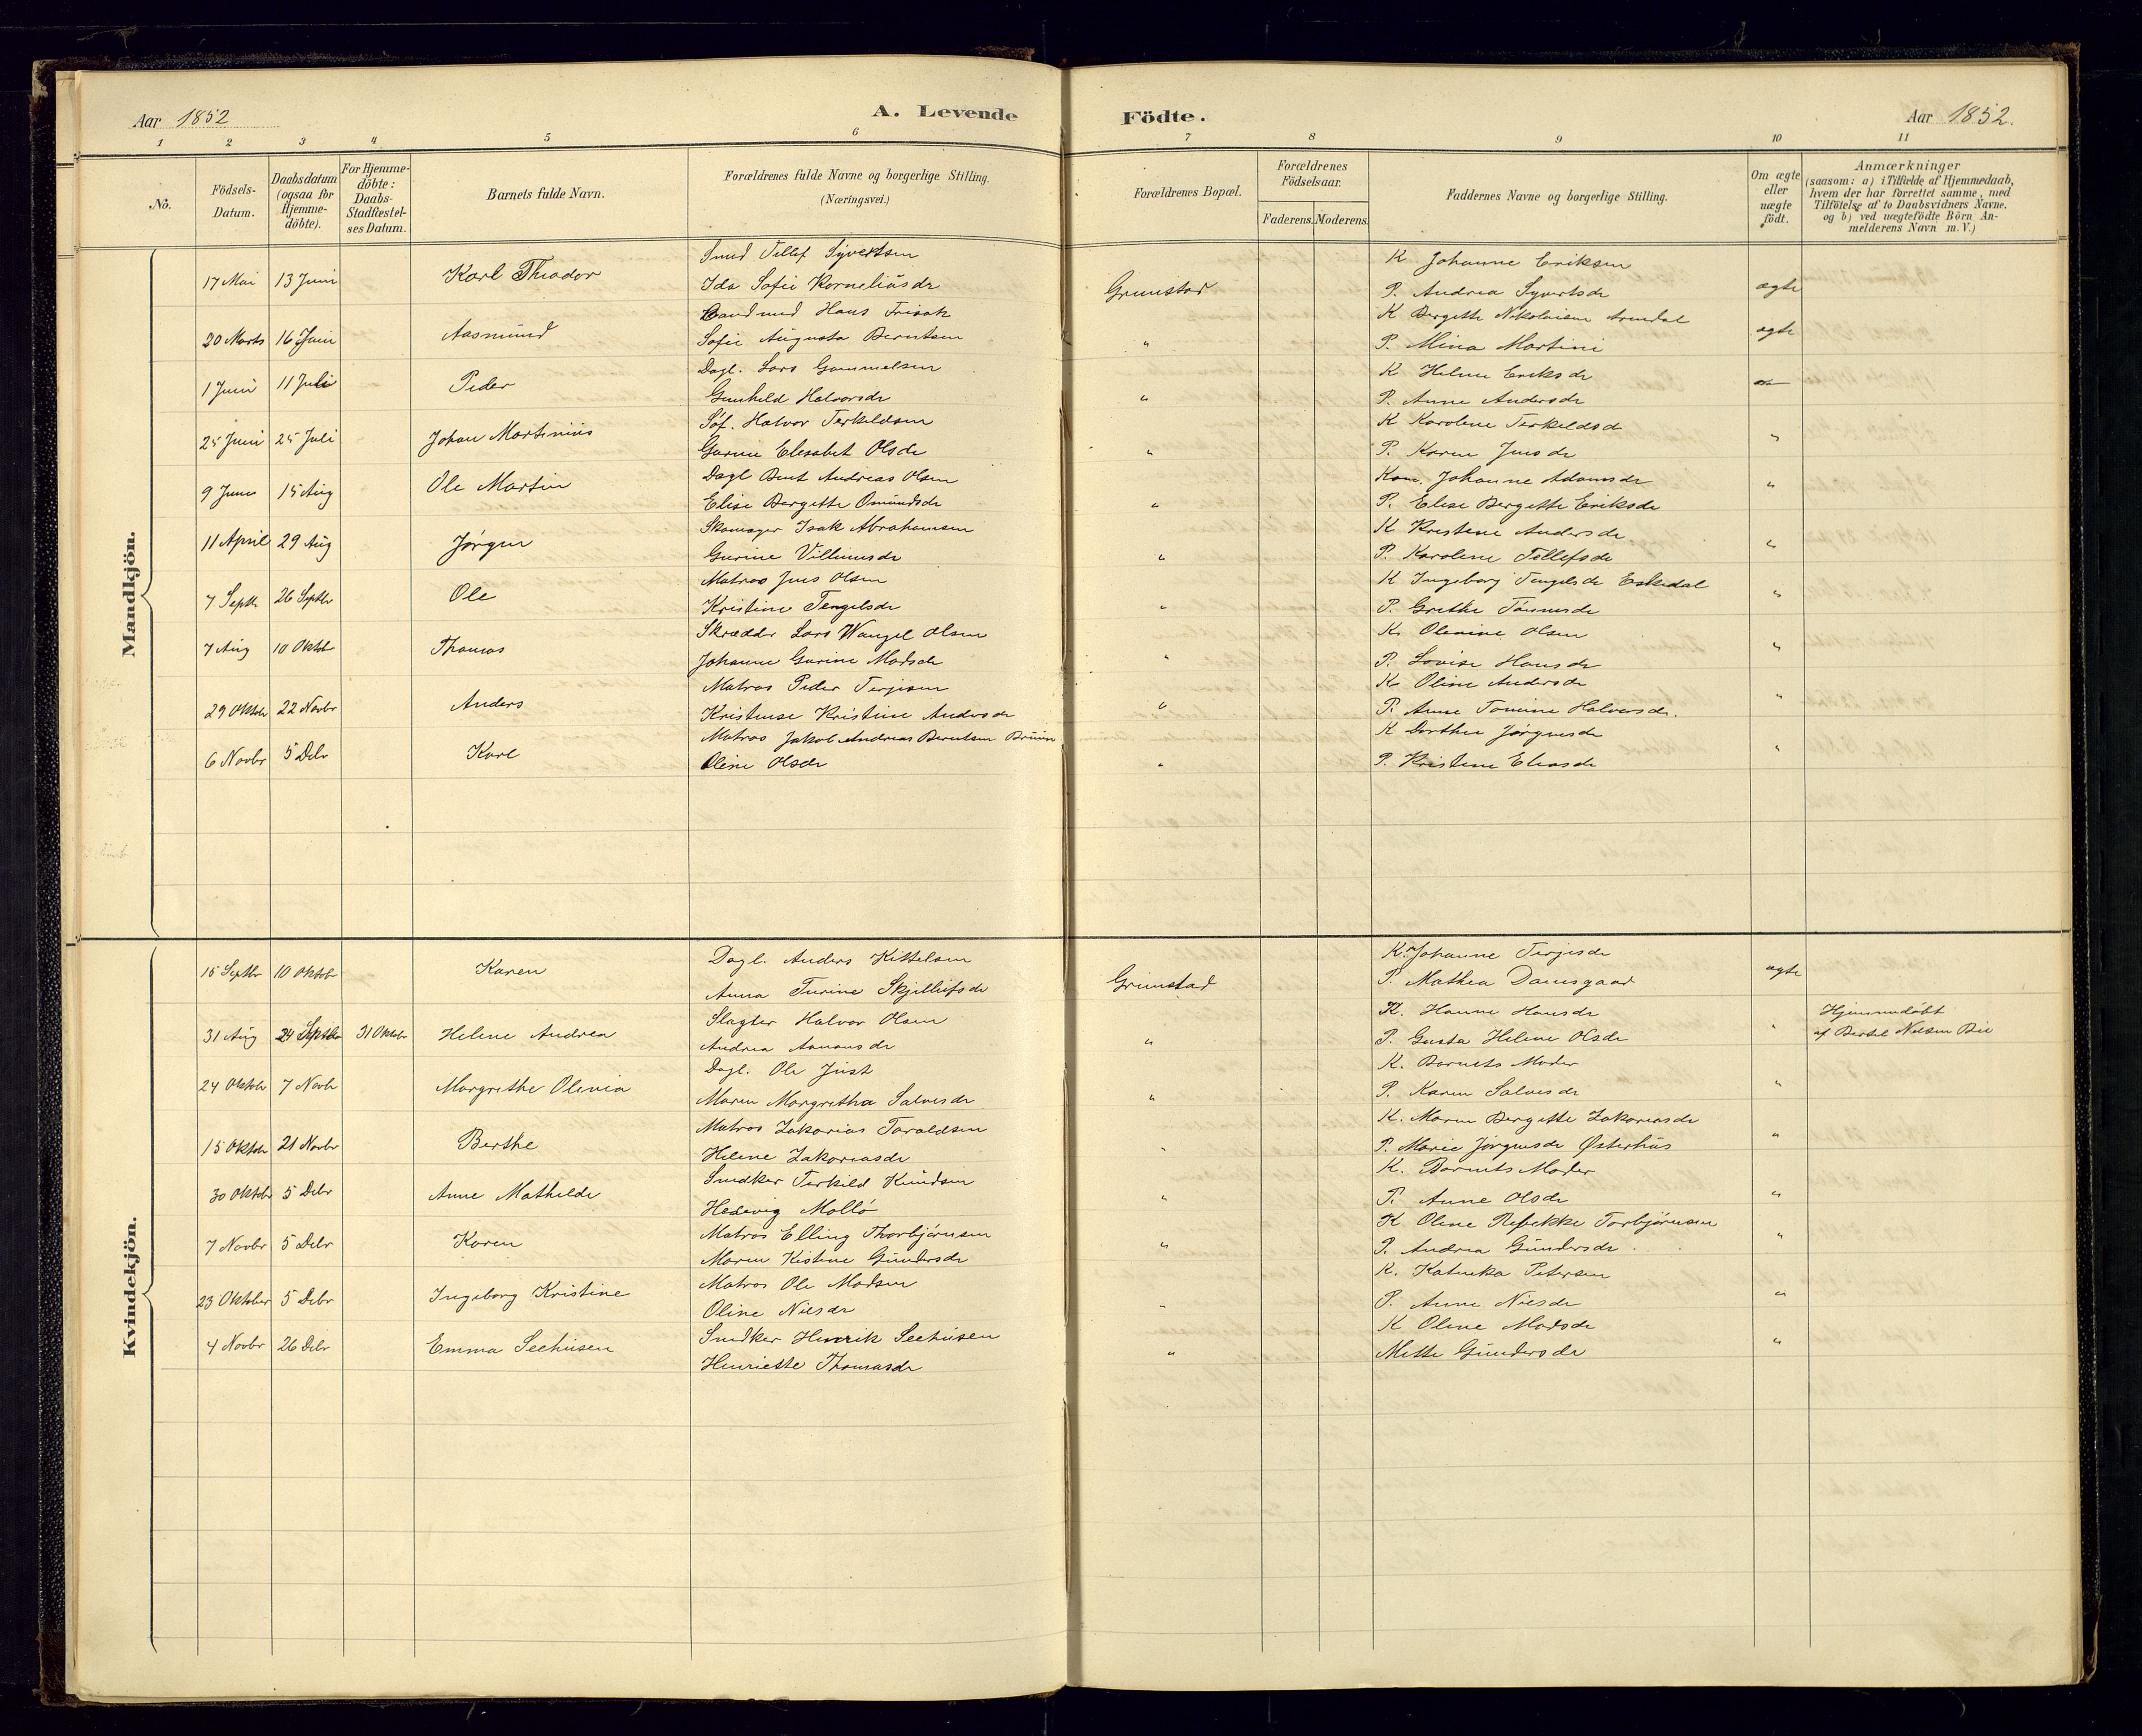 Aar 1852
A. Levende Födte.
Aar 1852.
1 2 3 4 5 6 7 8 9 10 11
No.
Födsels-Datum.
Daabsdatum (ogsaa for Hjemme-döbte).
For Hjemme-döbte: Daabs-Stadfæstel-ses Datum.
Barnets fulde Navn.
Forældrenes fulde Navne og borgerlige Stilling.
(Næringsvei.)
Forældrenes Bopæl.
Forældrenes Födselsaar.
Faderens. Moderens.
Faddernes Navne og borgerlige Stilling.
Om ægte eller uægte födt.
Anmærkninger
(saasom: a) i Tilfælde af Hjemmedaab,
hvem der har forrettet samme, med
Tilföielse af to Daabsvidners Navne.
og b) ved uægtefödte Börn An-
melderens Navn m. V.)
Mandkjön.
Smed Tellef Syvertsen K Johanne Eriksen
17 Mai 13 Juni Karl Theodor Ida Sofie Korneliusdr Grimstad P. Andrea Syvertsdr ægte
Hans Frisak K Bergitte Nikolaisen Arendal
20 Marts 16 Juni Aasmund Sofie Augusta Berntsen " P. Mina Martini ægte
Dagl. Lars Gammelsen K Helene Eriksdr
1 Juni 11 Juli Peder Gunhild Halvorsdr " P. Anne Andersdr
Söf. Halvor Terkeldsen K Karolene Terkeldsd
25 Juni 25 Juli Johan Martinius Gurine Elesabet Olsdr " P. Karen Jensdr "
Dagl Bent Andreas Olsen Kone. Johanne Adamsdr
9 Juni 15 Aug Ole Martin Elise Bergitte Omundsdr " P. Elise Bergitte Eriksdr "
Skomager Isak Abrahamsen K Kristine Andersdr
11 April 29 Aug Jörgen Gurine Villumsdr " P. Karoline Tellefsdr "
Matros Jens Olsen K Ingeborg Tengelsdr Eskedal
7 Septb 26 Septbr Ole Kristine Tengelsdr " P. Grethe Tönnesdr "
Skrædder Lars Wangel Olsen K. Olenine Olsen
7 Aug 10 Oktbr Thomas Johanne Gurine Madsdr " P. Lovise Hansdr "
Matros Peder Terjesen K Oline Andersdr
29 Oktobr 22 Novbr Anders Kristense Kristine Andersdr " P. Anne Tomine Halvorsdr. "
Matros Jakob Andreas Berntsen Bruun K Dorthea Jörgensdr
6 Novbr 5 Debr Karl Oline Olsdr " P. Kristine Eliasdr "
Kvindekjön.
Dagl. Anders Kittelsen K. Johanne Terjesdr
15 Septbr 10 Oktobr Karen Anna Turine Skjellufsdr Grimstad P. Mathea Damsgaard ægte
Slagter Halvor Olsen K. Hanne Hansdr Hjemmedöbt
31 Aug 24 Septbr 31 Oktobr Helene Andrea Andrea Aanonsdr " P. Gusta Helene Olsdr " af Bertel Nielsen Bie
Dagl. Ole Just K. Barnets Moder
24 Oktobr 7 Novbr Margrethe Olenia Maren Margretha Salvesdr " P. Karen Salvesdr "
Matros Zakarias Taraldsen K. Maren Bergitte Zakariasdr
15 Oktobr 21 Novbr Berthe Helene Zakariasdr " P. Marie Jörgensdr Østerhus "
Snedker Terkild Knudsen K. Barnets Moder
30 Oktobr 5 Debr Anne Mathilde Hedevig Mollö " P. Anne Olsdr "
Matros Elling Thorbjörnsen K Oline Rebekke Torbjörnsen
7 Novbr 5 Debr Karen Maren Kistine Gundersdr " P. Andrea Gundersdr "
Matros Ole Madsen K. Katinka Petersen
23 Oktober 5 Debr Ingeborg Kristine Oline Nielsdr " P. Anne Nielsdr "
Snedker Henrik Seehusen K Oline Madsdr
4 Novbr 26 Debr Emma Seehusen Henriette Thomasdr " Mette Gundersdr "